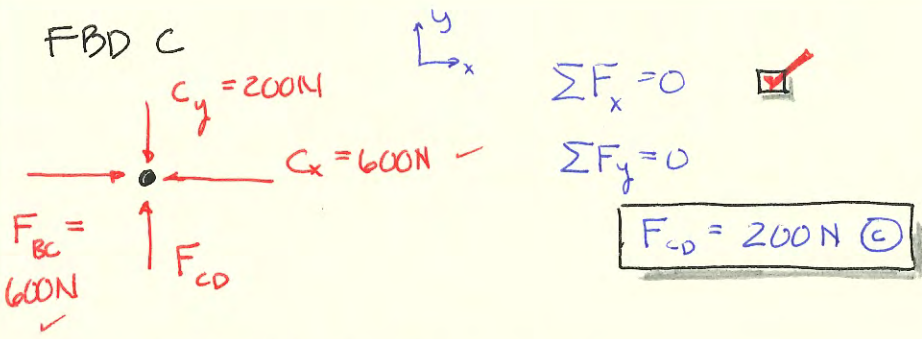 FBD C
y
x
C_y = 200N
C_x = 600N ✓
F_BC =
600N
✓
F_CD
ΣF_x = 0 ☑
ΣF_y = 0
F_CD = 200 N Ⓒ